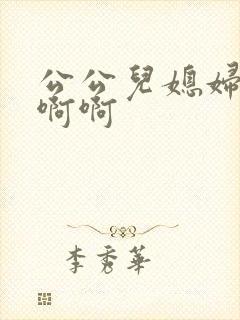 公公兒媳婦
啊啊
李秀華